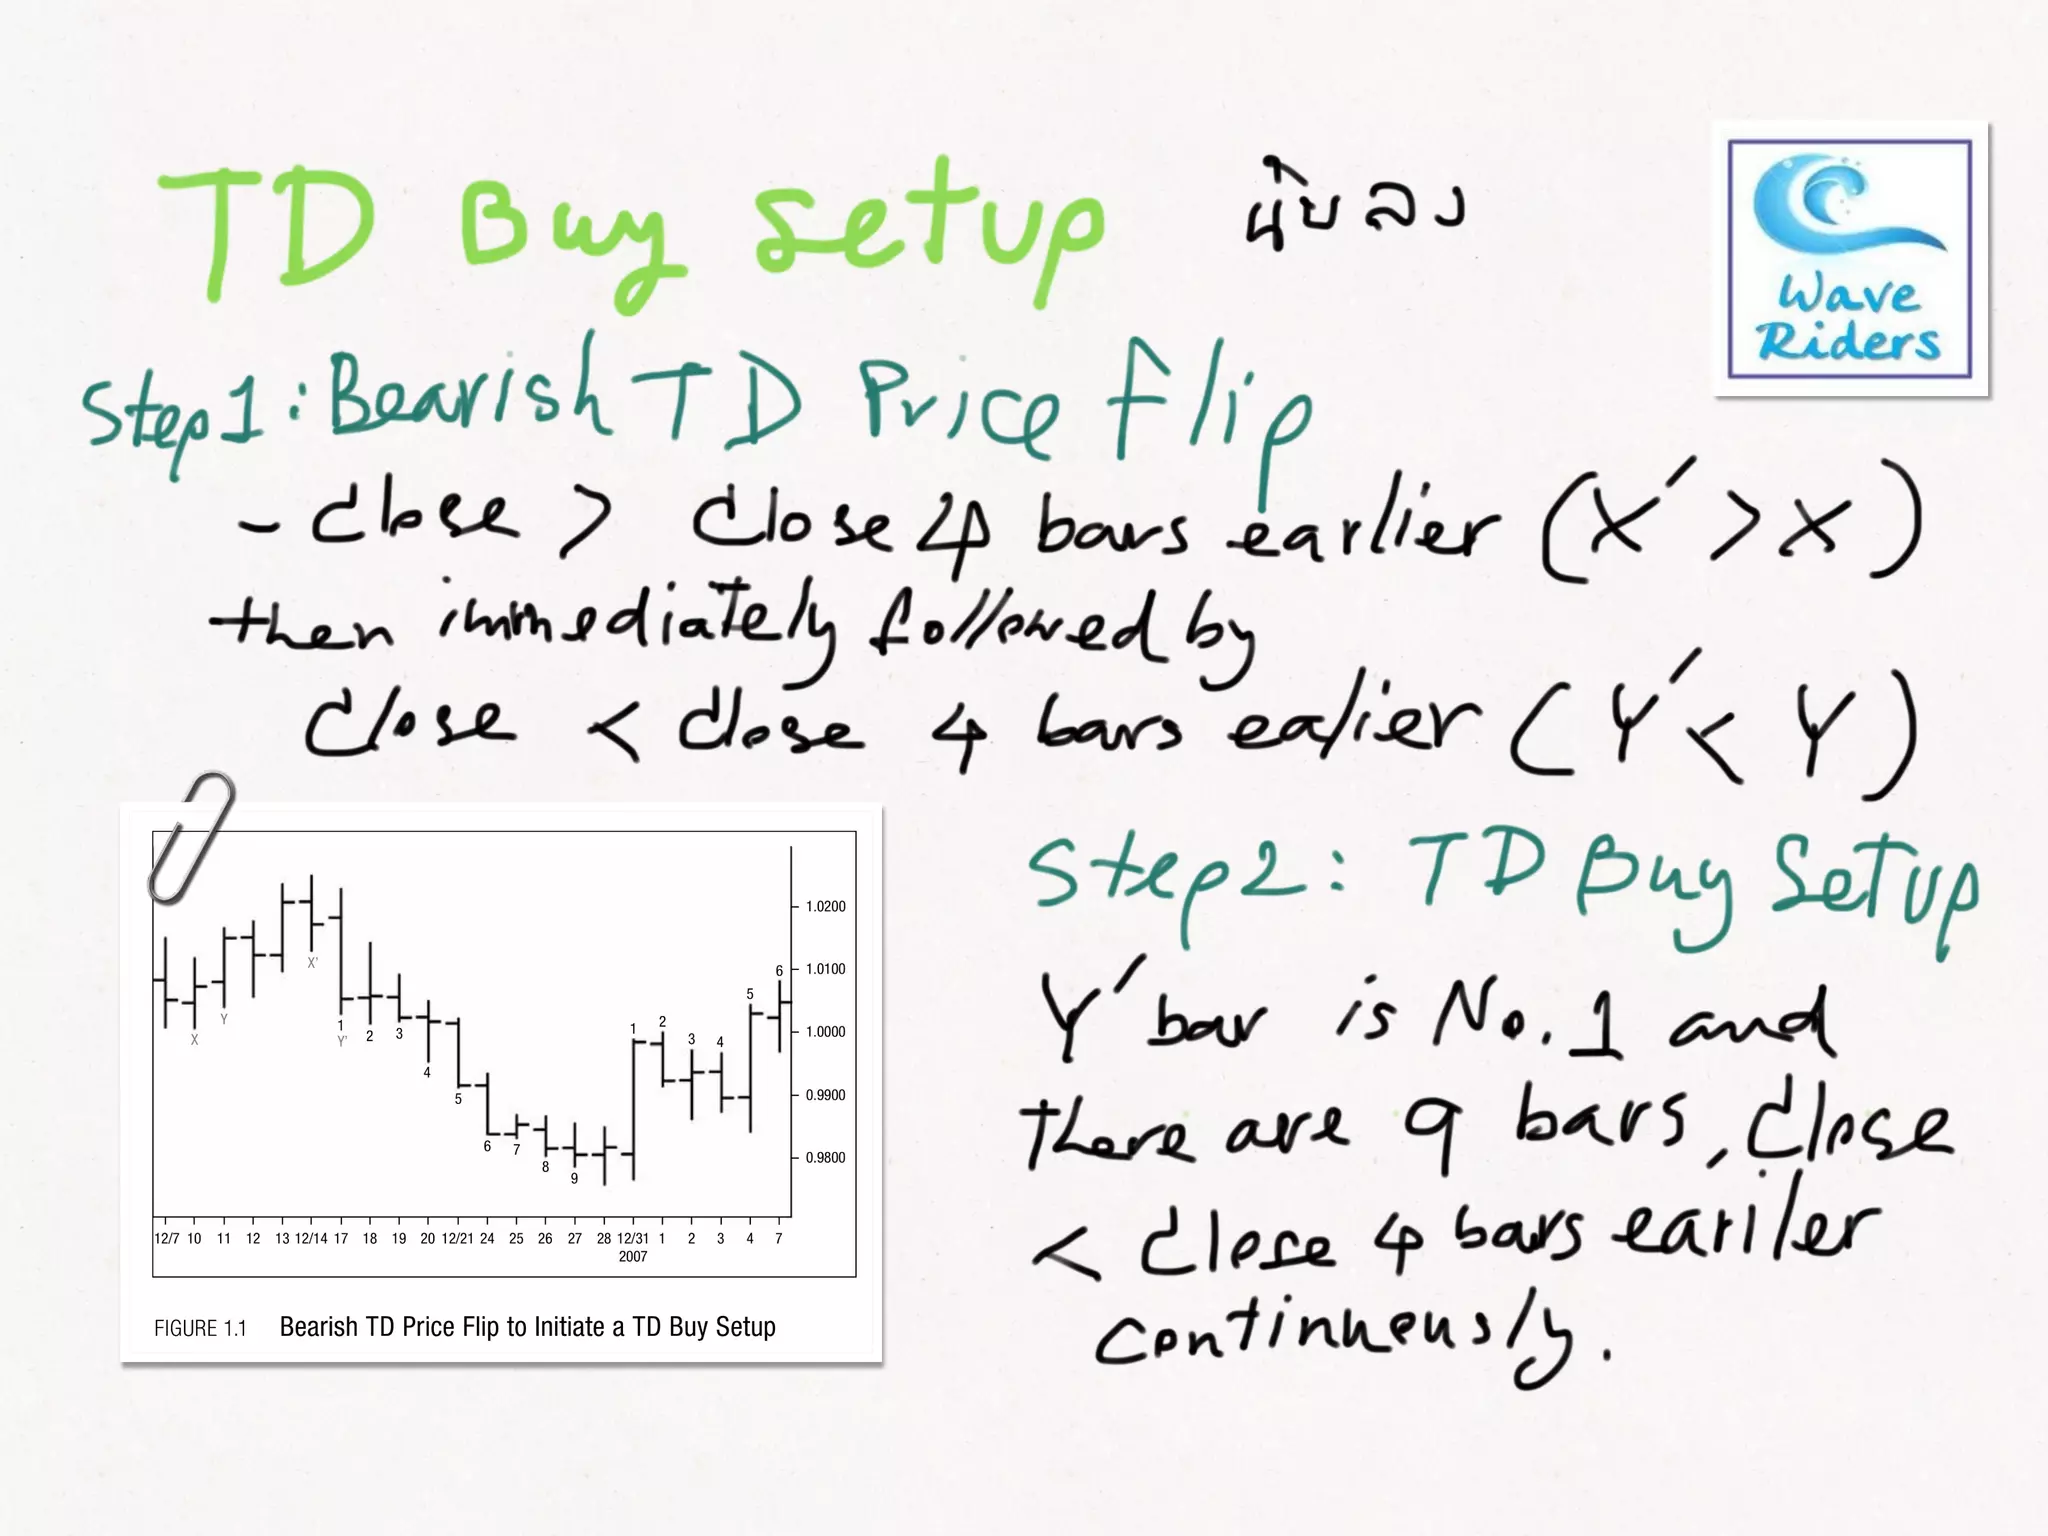 TD Buy setup นับลง
Wave
Riders
Step1: Bearish TD Price flip
- close > close 4 bars earlier (X' > X)
then immediately followed by
close < close 4 bars ealier (Y' < Y)
Step2: TD Buy Setup
Y' bar is No. 1 and
there are 9 bars, close
< close 4 bars eariler
continuously.
1.0200
1.0100
1.0000
0.9900
0.9800
X Y X' 1 Y' 2 3 4 5 6 7 8 9 1 2 3 4 5 6
12/7 10 11 12 13 12/14 17 18 19 20 12/21 24 25 26 27 28 12/31 1 2 3 4 7
2007
FIGURE 1.1 Bearish TD Price Flip to Initiate a TD Buy Setup